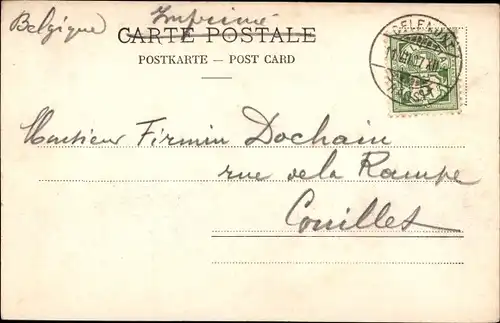 Belgique
Imprimé
CARTE POSTALE
POSTKARTE – POST CARD
Monsieur Firmin Dochain
rue de la Rampe
Couillet